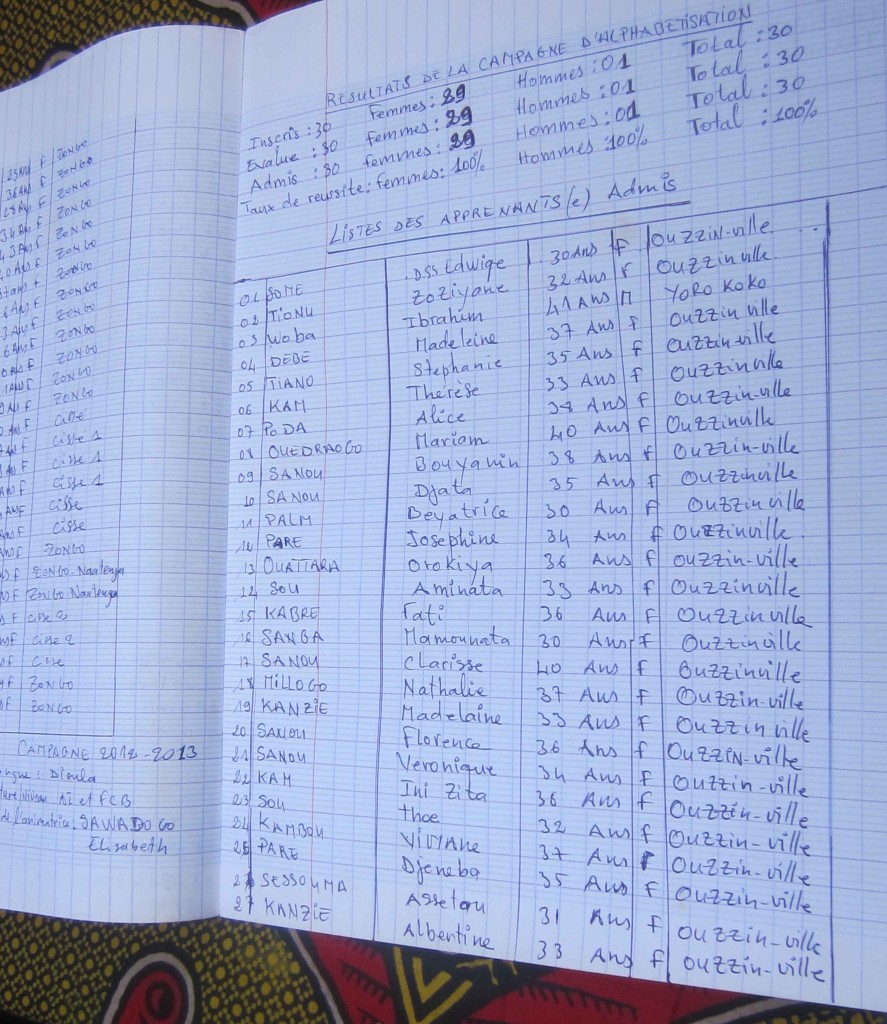 25 Ans f ZONGO
36 Ans f ZONGO
28 Ans F ZONGO
34 Ans F ZONGO
Ans F ZONGO
Ans F ZONGO
Ans F ZONGO
Ans F ZONGO
Ans F ZONGO
Ans F ZONGO
Ans F ZONGO
Ans F ZONGO
Ans F ZONGO
F Cisse
F Cisse 1
F Cisse 1
F Cisse 1
F Cisse
F Cisse
F ZONGO
F ZONGO-Naalenga
F ZONGO Naalenga
F Cisse 2
F Cisse 2
F Cisse
F ZONGO
F ZONGO
CAMPAGNE 2012-2013
Dioula
Niveau AI et FCB
de l'animatrice: SAWADOGO
Elisabeth
RESULTATS DE LA CAMPAGNE D'ALPHABETISATION
Inscris : 30 Femmes : 29 Hommes : 01 Total : 30
Evalue : 30 femmes : 29 Hommes : 01 Total : 30
Admis : 30 femmes : 29 Hommes : 01 Total : 30
Taux de reussite : femmes : 100% Hommes : 100% Total : 100%
LISTES DES APPRENANTS(e) Admis
01 SOME Dss Edwige 30 Ans f OUZZIN-ville
02 TIONU Zoziyane 32 Ans F OUZZin ville
03 Woba Ibrahim 41 Ans M YORO KOKO
04 DEBE Madeleine 37 Ans f OUZZin ville
05 TIANO Stephanie 35 Ans f OUZZin-ville
06 KAM Thérèse 33 Ans f OUZZinville
07 PODA Alice 38 Ans f OUZZin-ville
08 OUEDRAOGO Mariam 40 Ans F OUZZinville
09 SANOU Bouyanin 38 Ans f OUZZin-ville
10 SANOU Djata 35 Ans f OUZZinville
11 PALM Beyatrice 30 Ans F OUZZin ville
12 PARE Josephine 34 Ans f OUZZinville
13 OUATTARA Orokiya 36 Ans f OUZZin-ville
14 SOU Aminata 33 Ans f OUZZinville
15 KABRE Fati 36 Ans F OUZZin ville
16 SANGA Mamounata 30 Ans f OUZZinville
17 SANOU Clarisse 40 Ans f OUZZinville
18 MILLOGO Nathalie 37 Ans f OUZZin-ville
19 KANZIE Madelaine 33 Ans f OUZZin ville
20 SANOU Florence 36 Ans f OUZZIN-ville
21 SANOU Veronique 34 Ans f OUZZin-ville
22 KAM Ini Zita 36 Ans f OUZZin-ville
23 SOU thoe 32 Ans f OUZZin-ville
24 KAMBOU ViviAne 37 Ans F OUZZin-ville
25 PARE Djeneba 35 Ans f OUZZin-ville
26 SESSOUMA Assetou 31 Ans f OUZZin-ville
27 KANZIE Albertine 33 Ans f OUZZin-ville